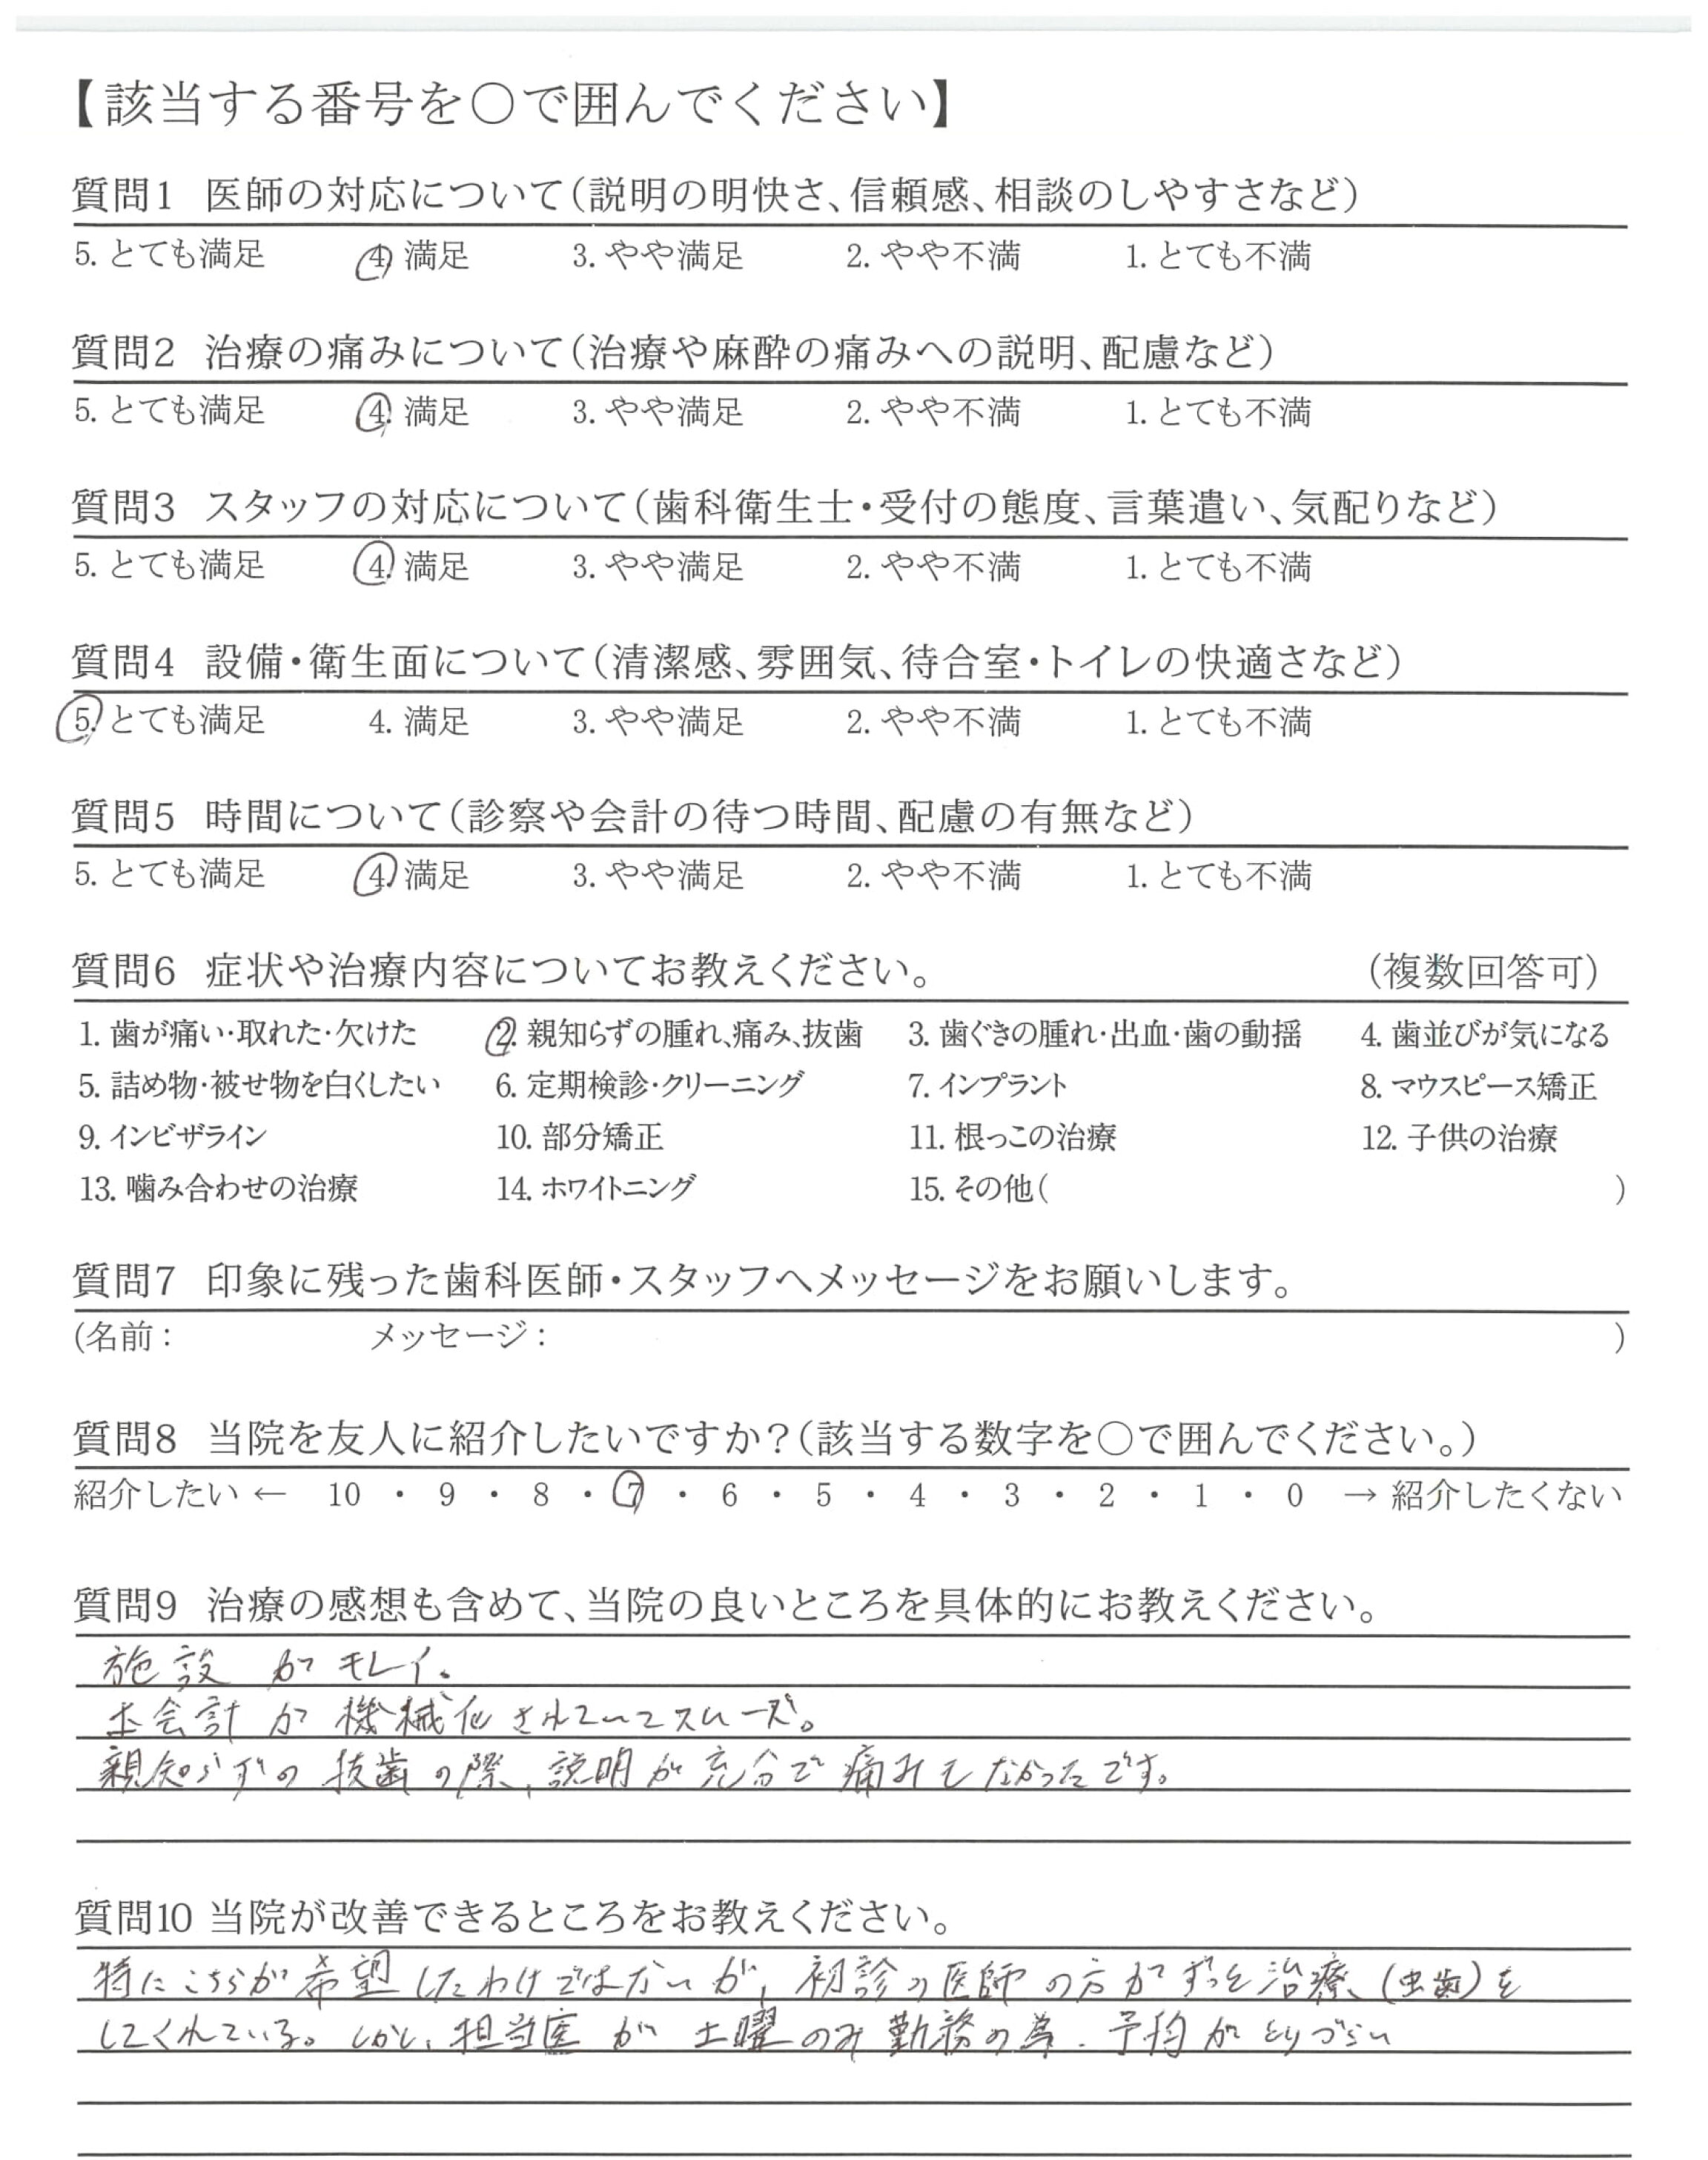 【該当する番号を○で囲んでください】
質問1 医師の対応について(説明の明快さ、信頼感、相談のしやすさなど)
5. とても満足 4. 満足 3. やや満足 2. やや不満 1. とても不満
質問2 治療の痛みについて(治療や麻酔の痛みへの説明、配慮など)
5. とても満足 4. 満足 3. やや満足 2. やや不満 1. とても不満
質問3 スタッフの対応について(歯科衛生士・受付の態度、言葉遣い、気配りなど)
5. とても満足 4. 満足 3. やや満足 2. やや不満 1. とても不満
質問4 設備・衛生面について(清潔感、雰囲気、待合室・トイレの快適さなど)
5. とても満足 4. 満足 3. やや満足 2. やや不満 1. とても不満
質問5 時間について(診察や会計の待つ時間、配慮の有無など)
5. とても満足 4. 満足 3. やや満足 2. やや不満 1. とても不満
質問6 症状や治療内容についてお教えください。 (複数回答可)
1. 歯が痛い・取れた・欠けた 2. 親知らずの腫れ、痛み、抜歯 3. 歯ぐきの腫れ・出血・歯の動揺 4. 歯並びが気になる
5. 詰め物・被せ物を白くしたい 6. 定期検診・クリーニング 7. インプラント 8. マウスピース矯正
9. インビザライン 10. 部分矯正 11. 根っこの治療 12. 子供の治療
13. 噛み合わせの治療 14. ホワイトニング 15. その他( )
質問7 印象に残った歯科医師・スタッフへメッセージをお願いします。
(名前： メッセージ： )
質問8 当院を友人に紹介したいですか?(該当する数字を○で囲んでください。)
紹介したい ← 10 ・ 9 ・ 8 ・ 7 ・ 6 ・ 5 ・ 4 ・ 3 ・ 2 ・ 1 ・ 0 → 紹介したくない
質問9 治療の感想も含めて、当院の良いところを具体的にお教えください。
施設がキレイ。
会計が機械化されていてスムーズ。
親知らずの抜歯の際、説明が充分で痛みもなかったです。
質問10 当院が改善できるところをお教えください。
特にこちらが希望したわけではないが、初診の医師の方がずっと治療(虫歯)を
してくれている。しかし、担当医が土曜のみ勤務の為、予約がとりづらい